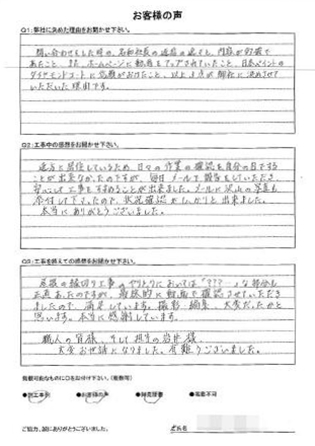 お客様の声
Q1:弊社に決めた理由をお聞かせ下さい。
問い合わせをした時の、名和社長の返答の速さと、内容が的確で
あたこと、また、ホームページに動画をアップされていたこと、日本ペイントの
ダイヤモンドコートに信頼がおけたこと、以上3点が御社に決めさせて
いただいた理由です。
Q2:工事中の感想をお聞かせ下さい。
遠方に居住しているため、日々の作業の確認を自分の目でする
ことが出来なかたのですが、毎日メールで報告をしていただき、
安心して工事をすすめることが出来ました。メールに沢山の写真も
添付して下さったので、状況確認がしっかりと出来ました。
本当にありがとうございました。
Q3:工事を終えての感想をお聞かせ下さい。
屋根の縁切り工事のやりとりにおいては「???…」な部分も
正直あたのですが、最終的に動画で確認させていただき
ましたので、満足しています。撮影・編集、大変だったかと
思います。本当に感謝しています。
職人の皆様、そして担当の
大変お世話になりました。有難うございました。
掲載可能なものに○をお付け下さい。(複数可)
●施工事例 ●お客様の声 ●直筆 ●掲載不可
ご協力、誠にありがとうございました。